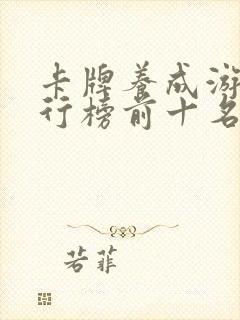 卡牌养成游
行榜前十名
若菲